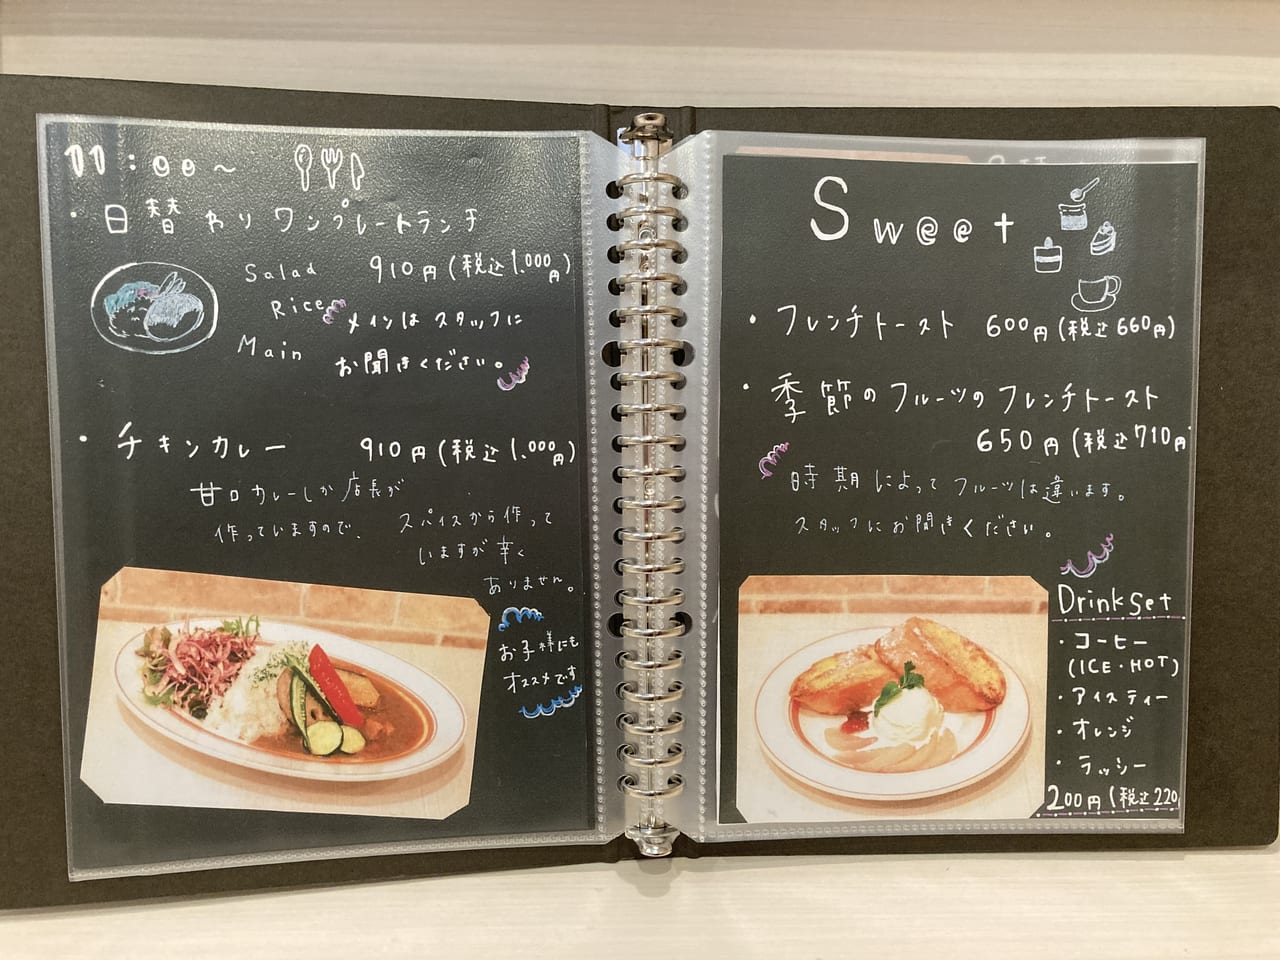 11:00～
・日替わりワンプレートランチ
Salad 910円(税込1,000円)
Rice
メインはスタッフに
Main
お聞きください。
・チキンカレー 910円(税込1,000円)
甘口カレーしか店長が
作っていますので、スパイスから作って
いますが辛く
ありません。
お子様にも
オススメです
Sweet
・フレンチトースト 600円(税込660円)
・季節のフルーツのフレンチトースト
650円(税込710円
時期によってフルーツは違います。
スタッフにお聞きください。
Drink Set
・コーヒー
(ICE・HOT)
・アイスティー
・オレンジ
・ラッシー
200円(税込220